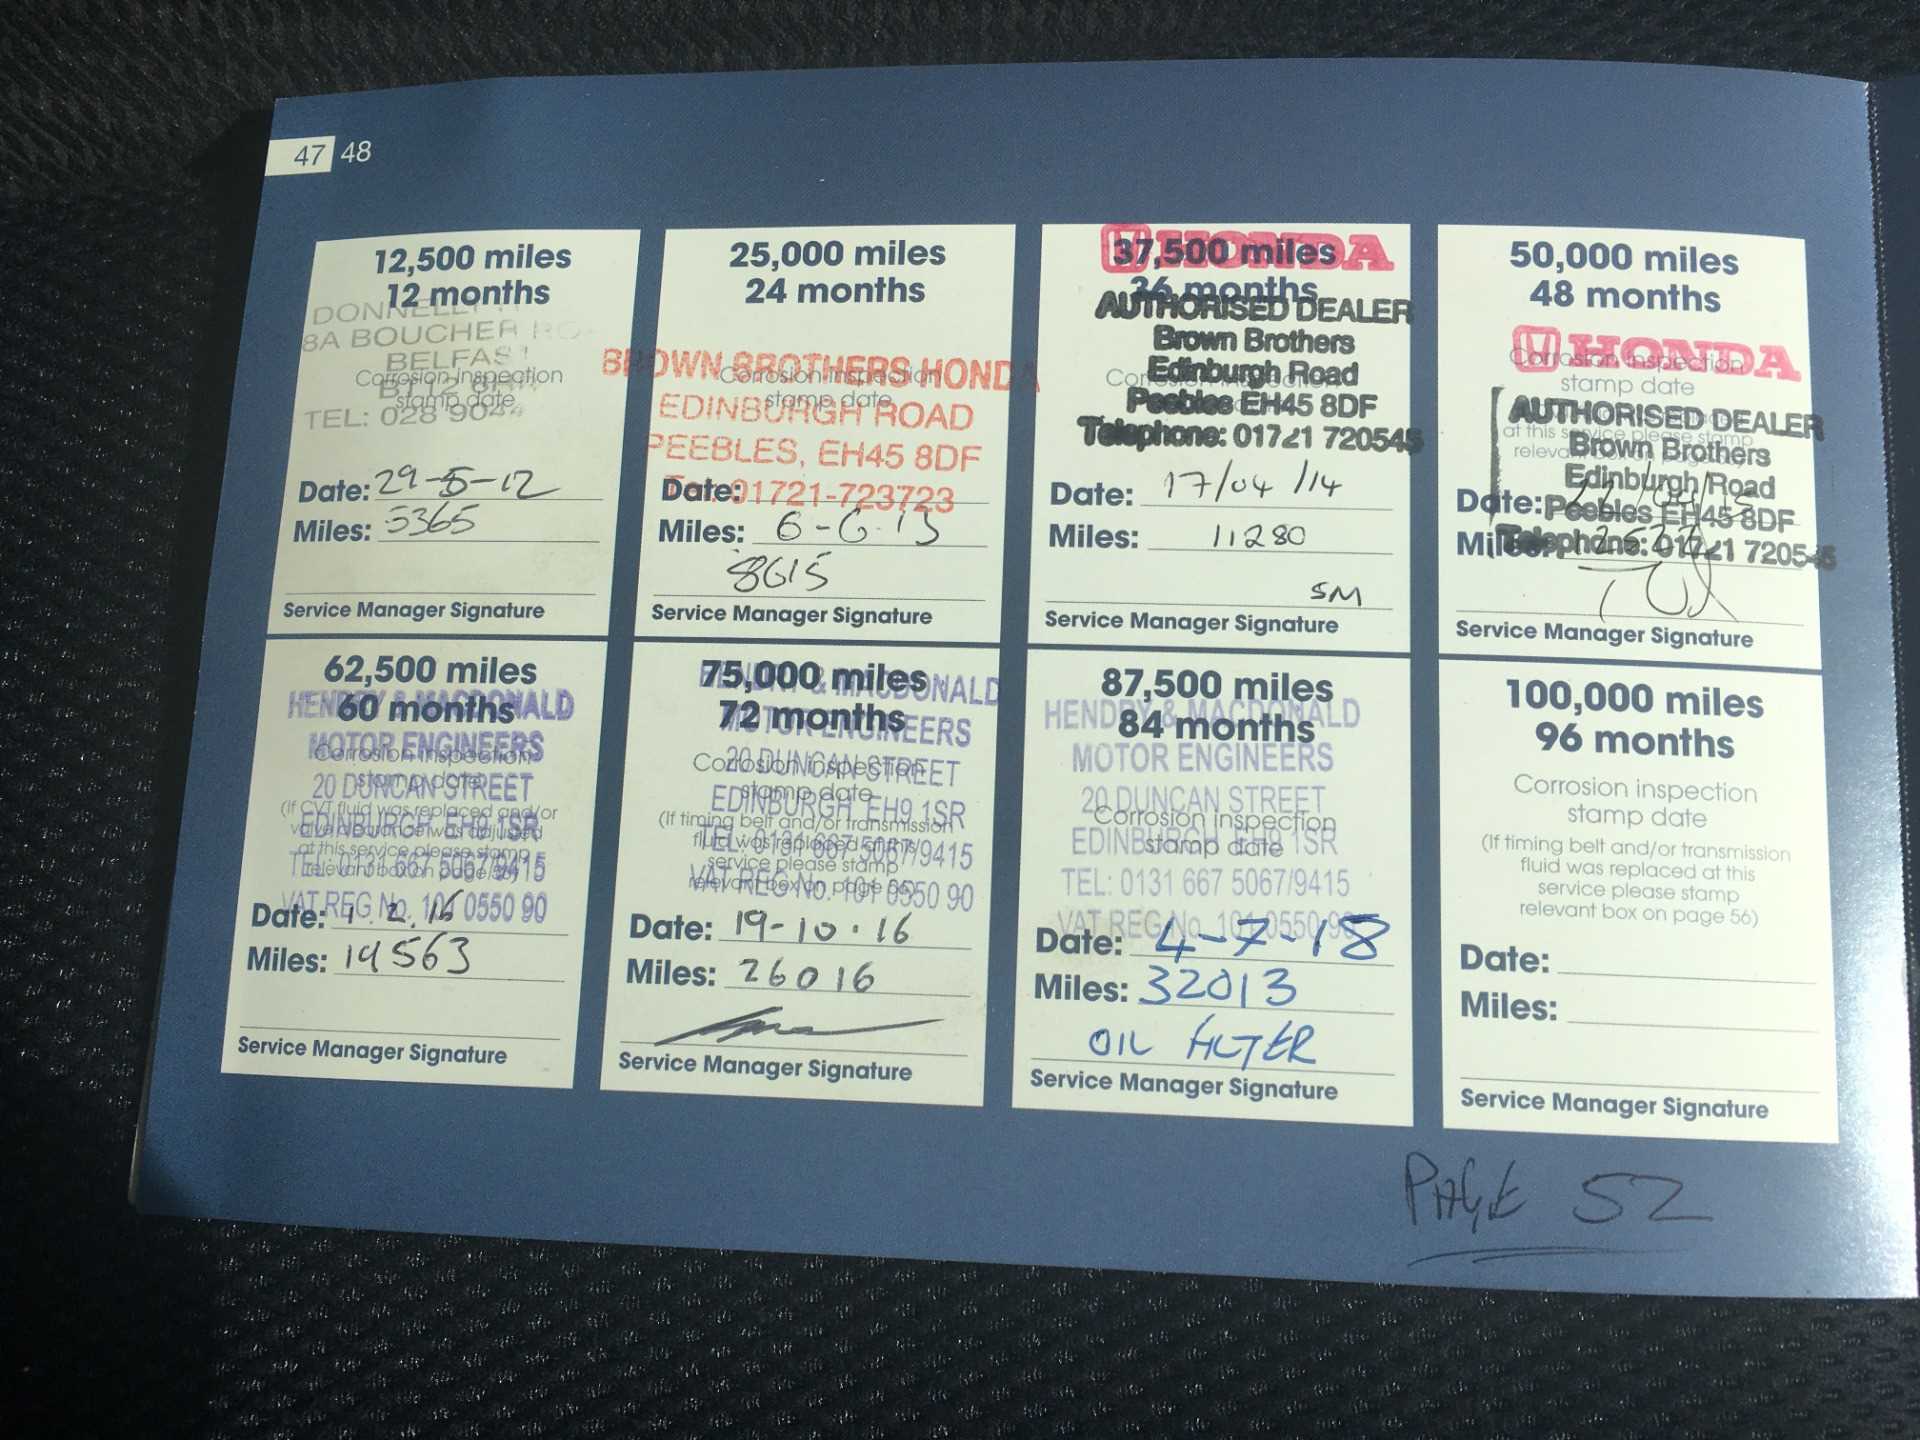 47 48
12,500 miles
12 months
8A BOUCHER
BELFAST
Corrosion inspection
stamp date
TEL: 028 904
Date: 29-5-12
Miles: 5365
Service Manager Signature
25,000 miles
24 months
BROWN BROTHERS HONDA
Corrosion inspection
stamp date
EDINBURGH ROAD
PEEBLES, EH45 8DF
Tel: 01721-723723
Date:
Miles: 6-6-13
8615
Service Manager Signature
HONDA
37,500 miles
36 months
AUTHORISED DEALER
Brown Brothers
Edinburgh Road
Peebles EH45 8DF
Telephone: 01721 720545
Date: 17/04/14
Miles: 11280
SM
Service Manager Signature
50,000 miles
48 months
HONDA
Corrosion inspection
stamp date
AUTHORISED DEALER
at this service please stamp
Brown Brothers
Edinburgh Road
Date:
Peebles EH45 8DF
Miles:
Telephone: 01721 720545
Service Manager Signature
62,500 miles
60 months
HENDRY & MACDONALD
MOTOR ENGINEERS
Corrosion inspection
stamp date
20 DUNCAN STREET
(If CVT fluid was replaced and/or
valve clearance was adjusted
EDINBURGH EH9 1SR
at this service please stamp
TEL: 0131 667 5067/9415
VAT REG No. 101 0550 90
Date: 1.2.16
Miles: 19563
Service Manager Signature
75,000 miles
72 months
HENDRY & MACDONALD
MOTOR ENGINEERS
Corrosion inspection
20 DUNCAN STREET
stamp date
EDINBURGH EH9 1SR
(If timing belt and/or transmission
fluid was replaced at this
TEL: 0131 667 5067/9415
service please stamp
relevant box on page 56)
VAT REG No. 101 0550 90
Date: 19-10-16
Miles: 26016
Service Manager Signature
87,500 miles
84 months
HENDRY & MACDONALD
MOTOR ENGINEERS
20 DUNCAN STREET
Corrosion inspection
stamp date
EDINBURGH EH9 1SR
TEL: 0131 667 5067/9415
VAT REG No. 101 0550 90
Date: 4-7-18
Miles: 32013
OIL FILTER
Service Manager Signature
100,000 miles
96 months
Corrosion inspection
stamp date
(If timing belt and/or transmission
fluid was replaced at this
service please stamp
relevant box on page 56)
Date:
Miles:
Service Manager Signature
PAGE 52